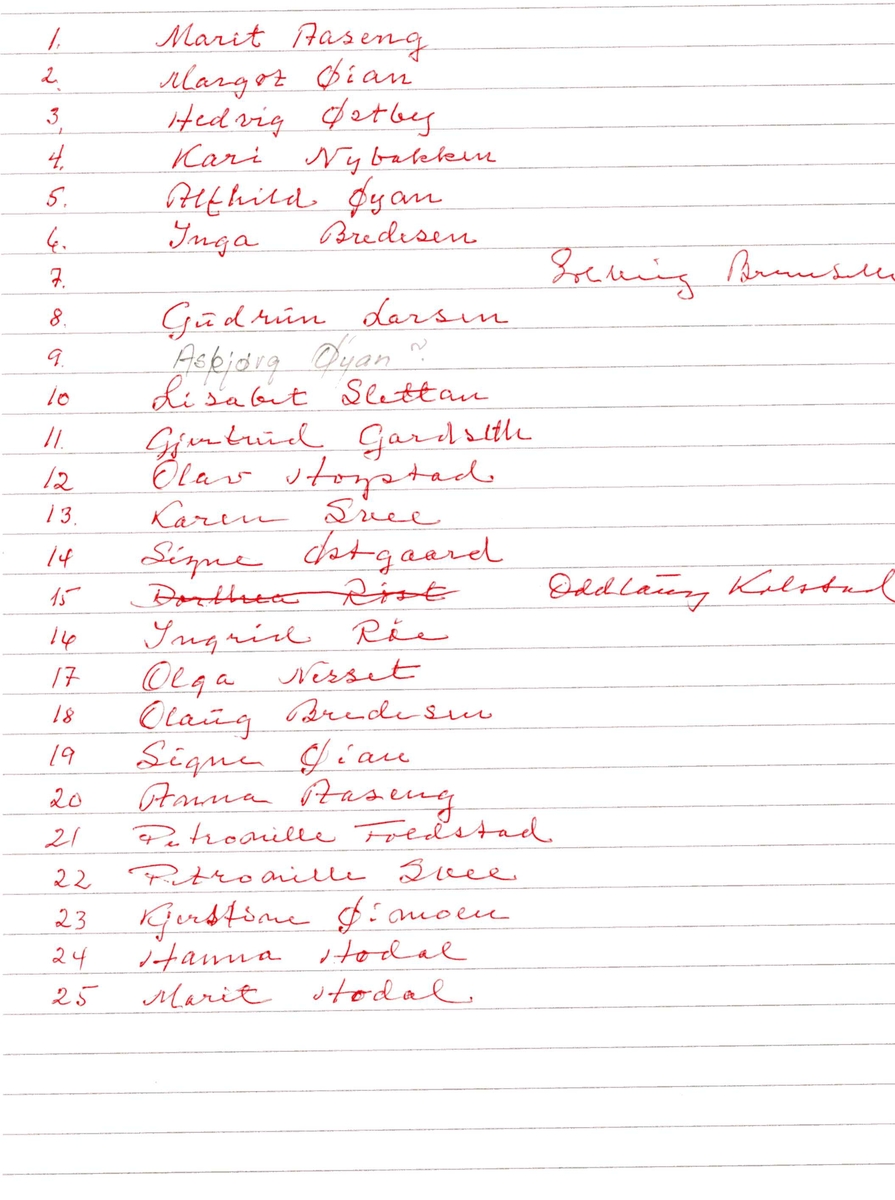 1. Marit Aaseng
2. Margot Øian
3. Hedvig Østby
4. Kari Nybakken
5. Alfhild Øyan
6. Inga Bredesen
7. Solveig
8. Gudrun Larsen
9. Asbjørg Øyan ?
10 Lisabet Slettan
11. Gjertrud Gardseth
12 Olav Høystad
13. Karen Svee
14 Signe Østgaard
15 Dorthea Røst Oddlaug Kolstad
16 Ingrid Røe
17 Olga Nesset
18 Olaug Bredesen
19 Signe Øian
20 Anna Aaseng
21 Petronille Foldstad
22 Petronille Svee
23 Kjerstine Øimoen
24 Hanna Hodal
25 Marit Hodal